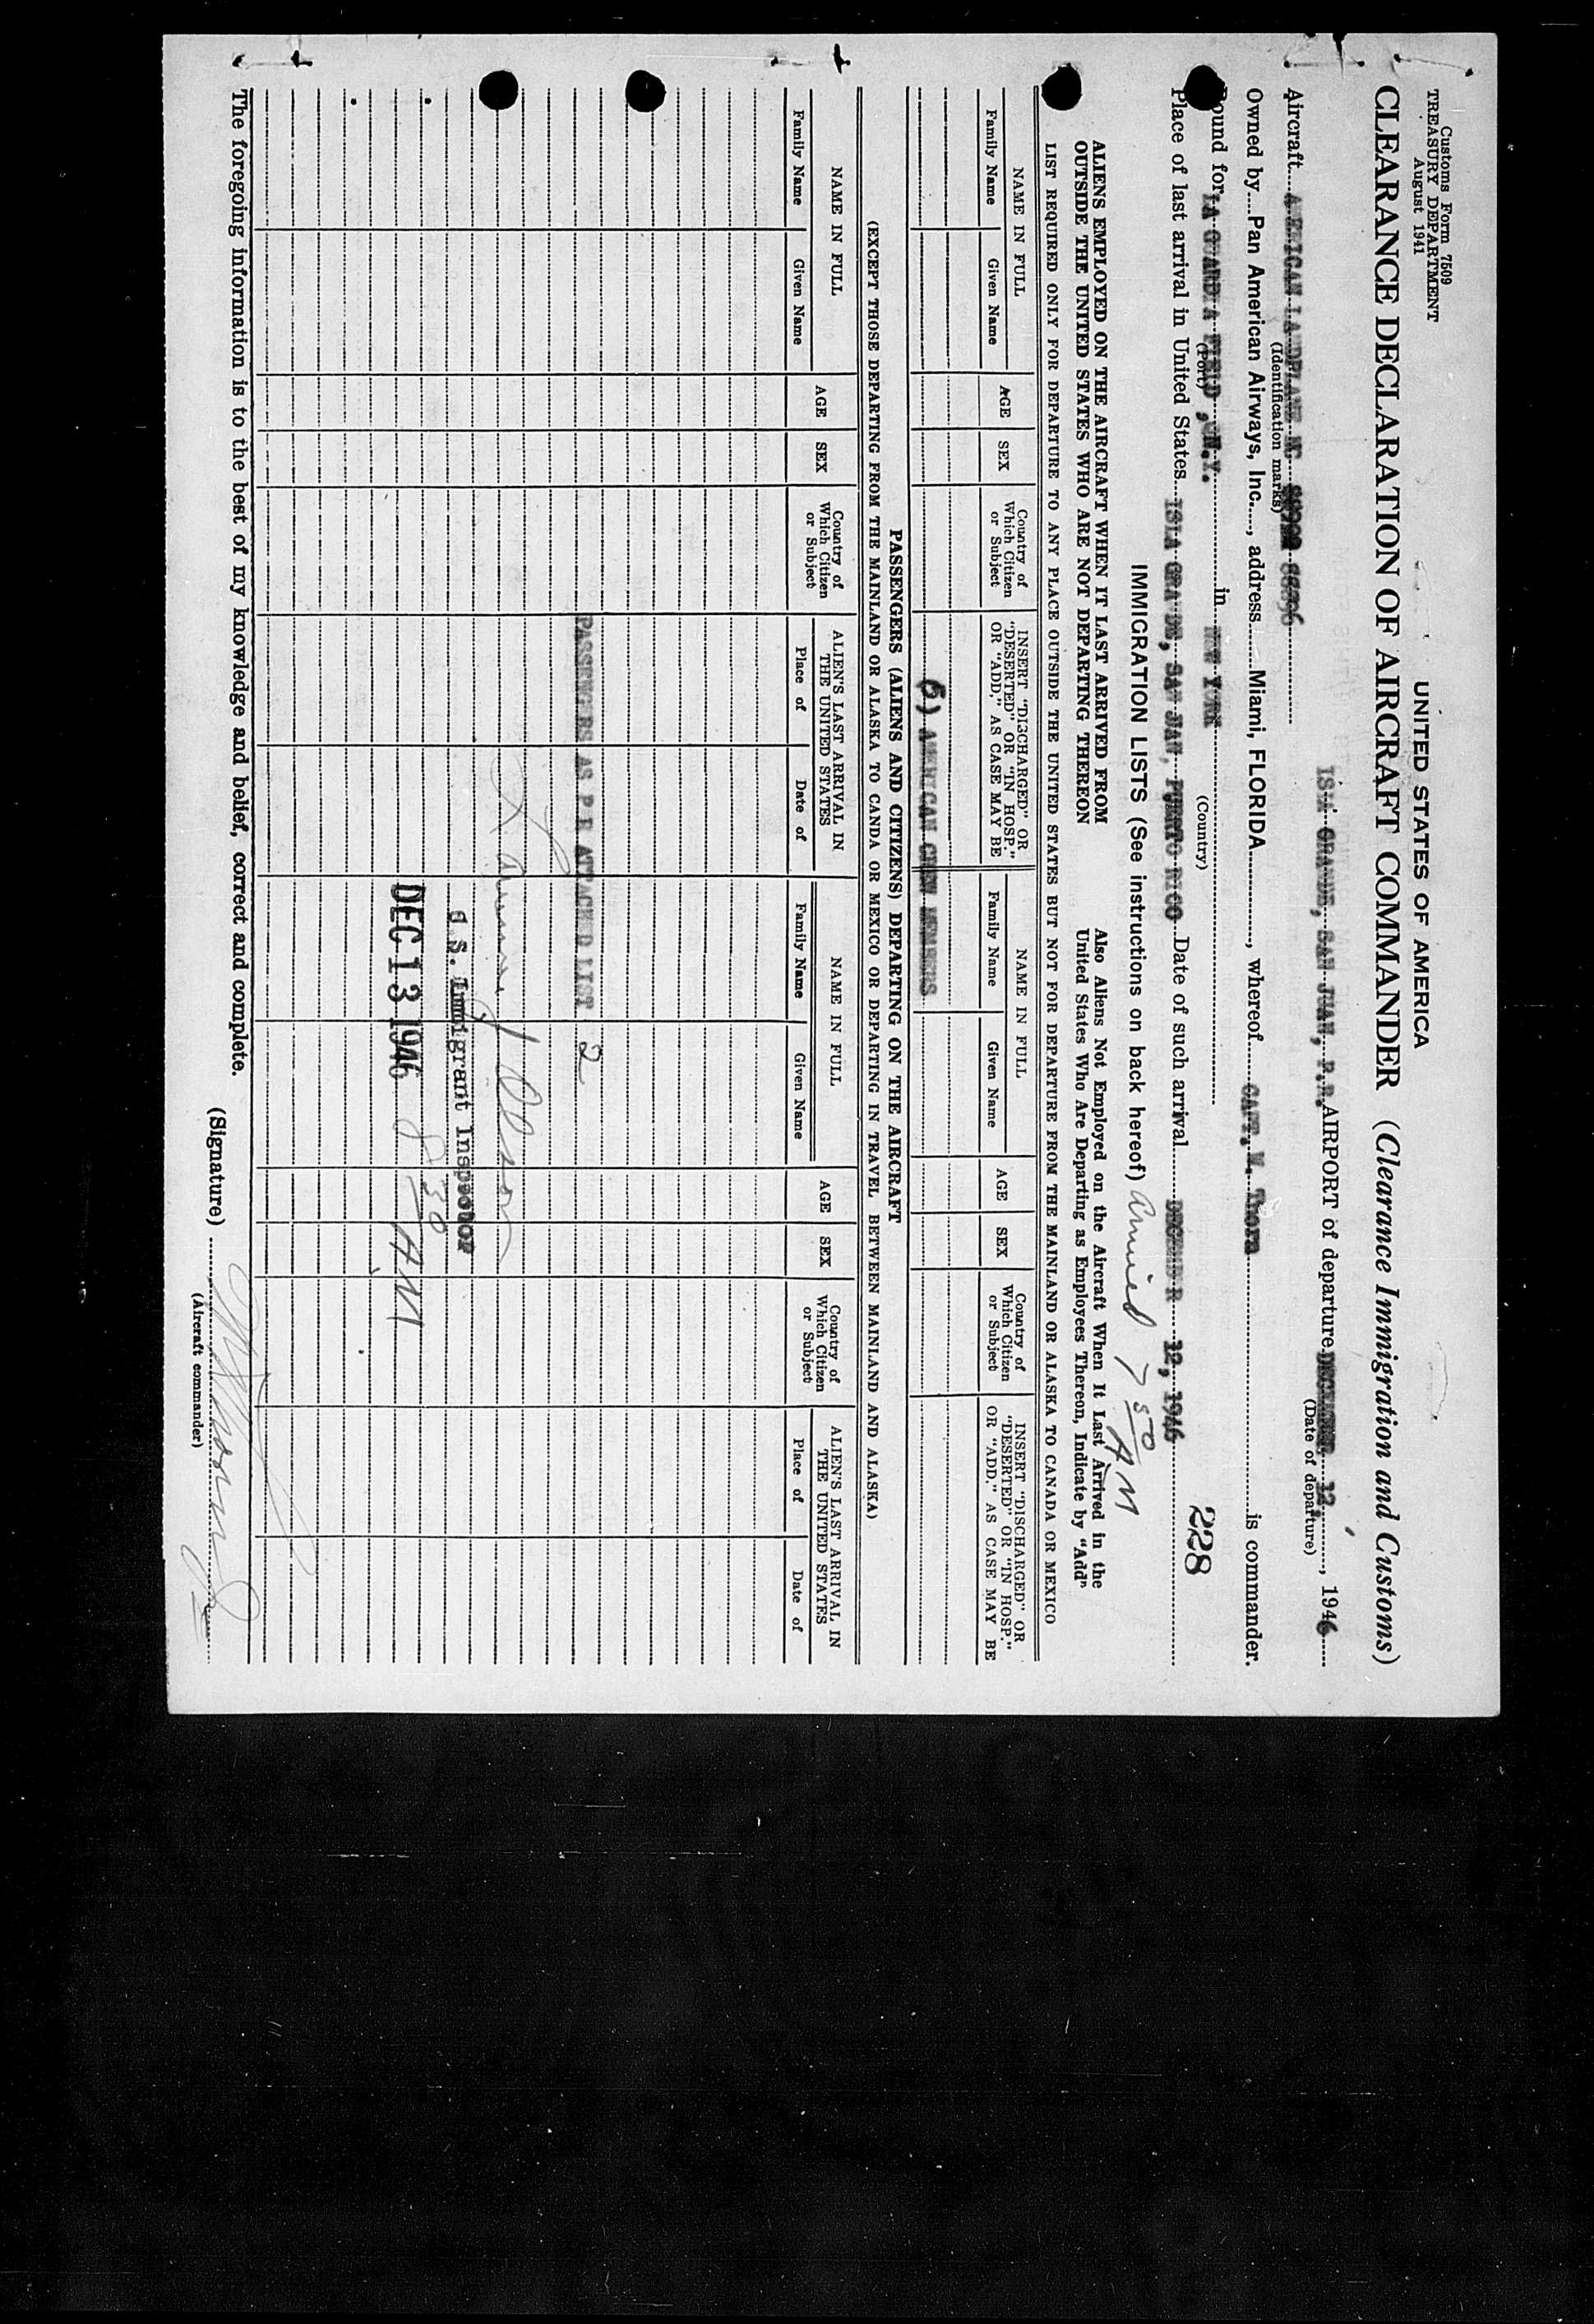 Customs Form 7509
TREASURY DEPARTMENT
August 1941
UNITED STATES OF AMERICA
CLEARANCE DECLARATION OF AIRCRAFT COMMANDER (Clearance Immigration and Customs)
ISLA GRANDE, SAN JUAN, P.R. AIRPORT of departure DECEMBER 12, , 1946
(Date of departure)
Aircraft
(Identification marks)
Owned by Pan American Airways, Inc. , address Miami, FLORIDA , whereof CAPT. W. is commander.
Bound for LA GUARDIA FIELD , N.Y. in NEW YORK
(Port)
(Country)
228
Place of last arrival in United States ISLA GRANDE, SAN JUAN, PUERTO RICO Date of such arrival DECEMBER 12, 1946
IMMIGRATION LISTS (See instructions on back hereof) arrived 7 50 AM
ALIENS EMPLOYED ON THE AIRCRAFT WHEN IT LAST ARRIVED FROM
OUTSIDE THE UNITED STATES WHO ARE NOT DEPARTING THEREON
Also Aliens Not Employed on the Aircraft When It Last Arrived in the
United States Who Are Departing as Employees Thereon, Indicate by "Add"
LIST REQUIRED ONLY FOR DEPARTURE TO ANY PLACE OUTSIDE THE UNITED STATES BUT NOT FOR DEPARTURE FROM THE MAINLAND OR ALASKA TO CANADA OR MEXICO
NAME IN FULL
Family Name
Given Name
AGE
SEX
Country of
Which Citizen
or Subject
INSERT "DISCHARGED" OR
"DESERTED" OR "IN HOSP."
OR "ADD," AS CASE MAY BE
NAME IN FULL
Family Name
Given Name
AGE
SEX
Country of
Which Citizen
or Subject
INSERT "DISCHARGED" OR
"DESERTED" OR "IN HOSP."
OR "ADD," AS CASE MAY BE
6) AMERICAN CREW MEMBERS
PASSENGERS (ALIENS AND CITIZENS) DEPARTING ON THE AIRCRAFT
(EXCEPT THOSE DEPARTING FROM THE MAINLAND OR ALASKA TO CANDA OR MEXICO OR DEPARTING IN TRAVEL BETWEEN MAINLAND AND ALASKA)
NAME IN FULL
Family Name
Given Name
AGE
SEX
Country of
Which Citizen
or Subject
ALIEN'S LAST ARRIVAL IN
THE UNITED STATES
Place of
Date of
NAME IN FULL
Family Name
Given Name
AGE
SEX
Country of
Which Citizen
or Subject
ALIEN'S LAST ARRIVAL IN
THE UNITED STATES
Place of
Date of
PASSENGERS AS PER ATTACHED LIST 2
U.S. Immigrant Inspector
DEC 13 1946 8 30 AM
The foregoing information is to the best of my knowledge and belief, correct and complete.
(Signature)
(Aircraft commander)